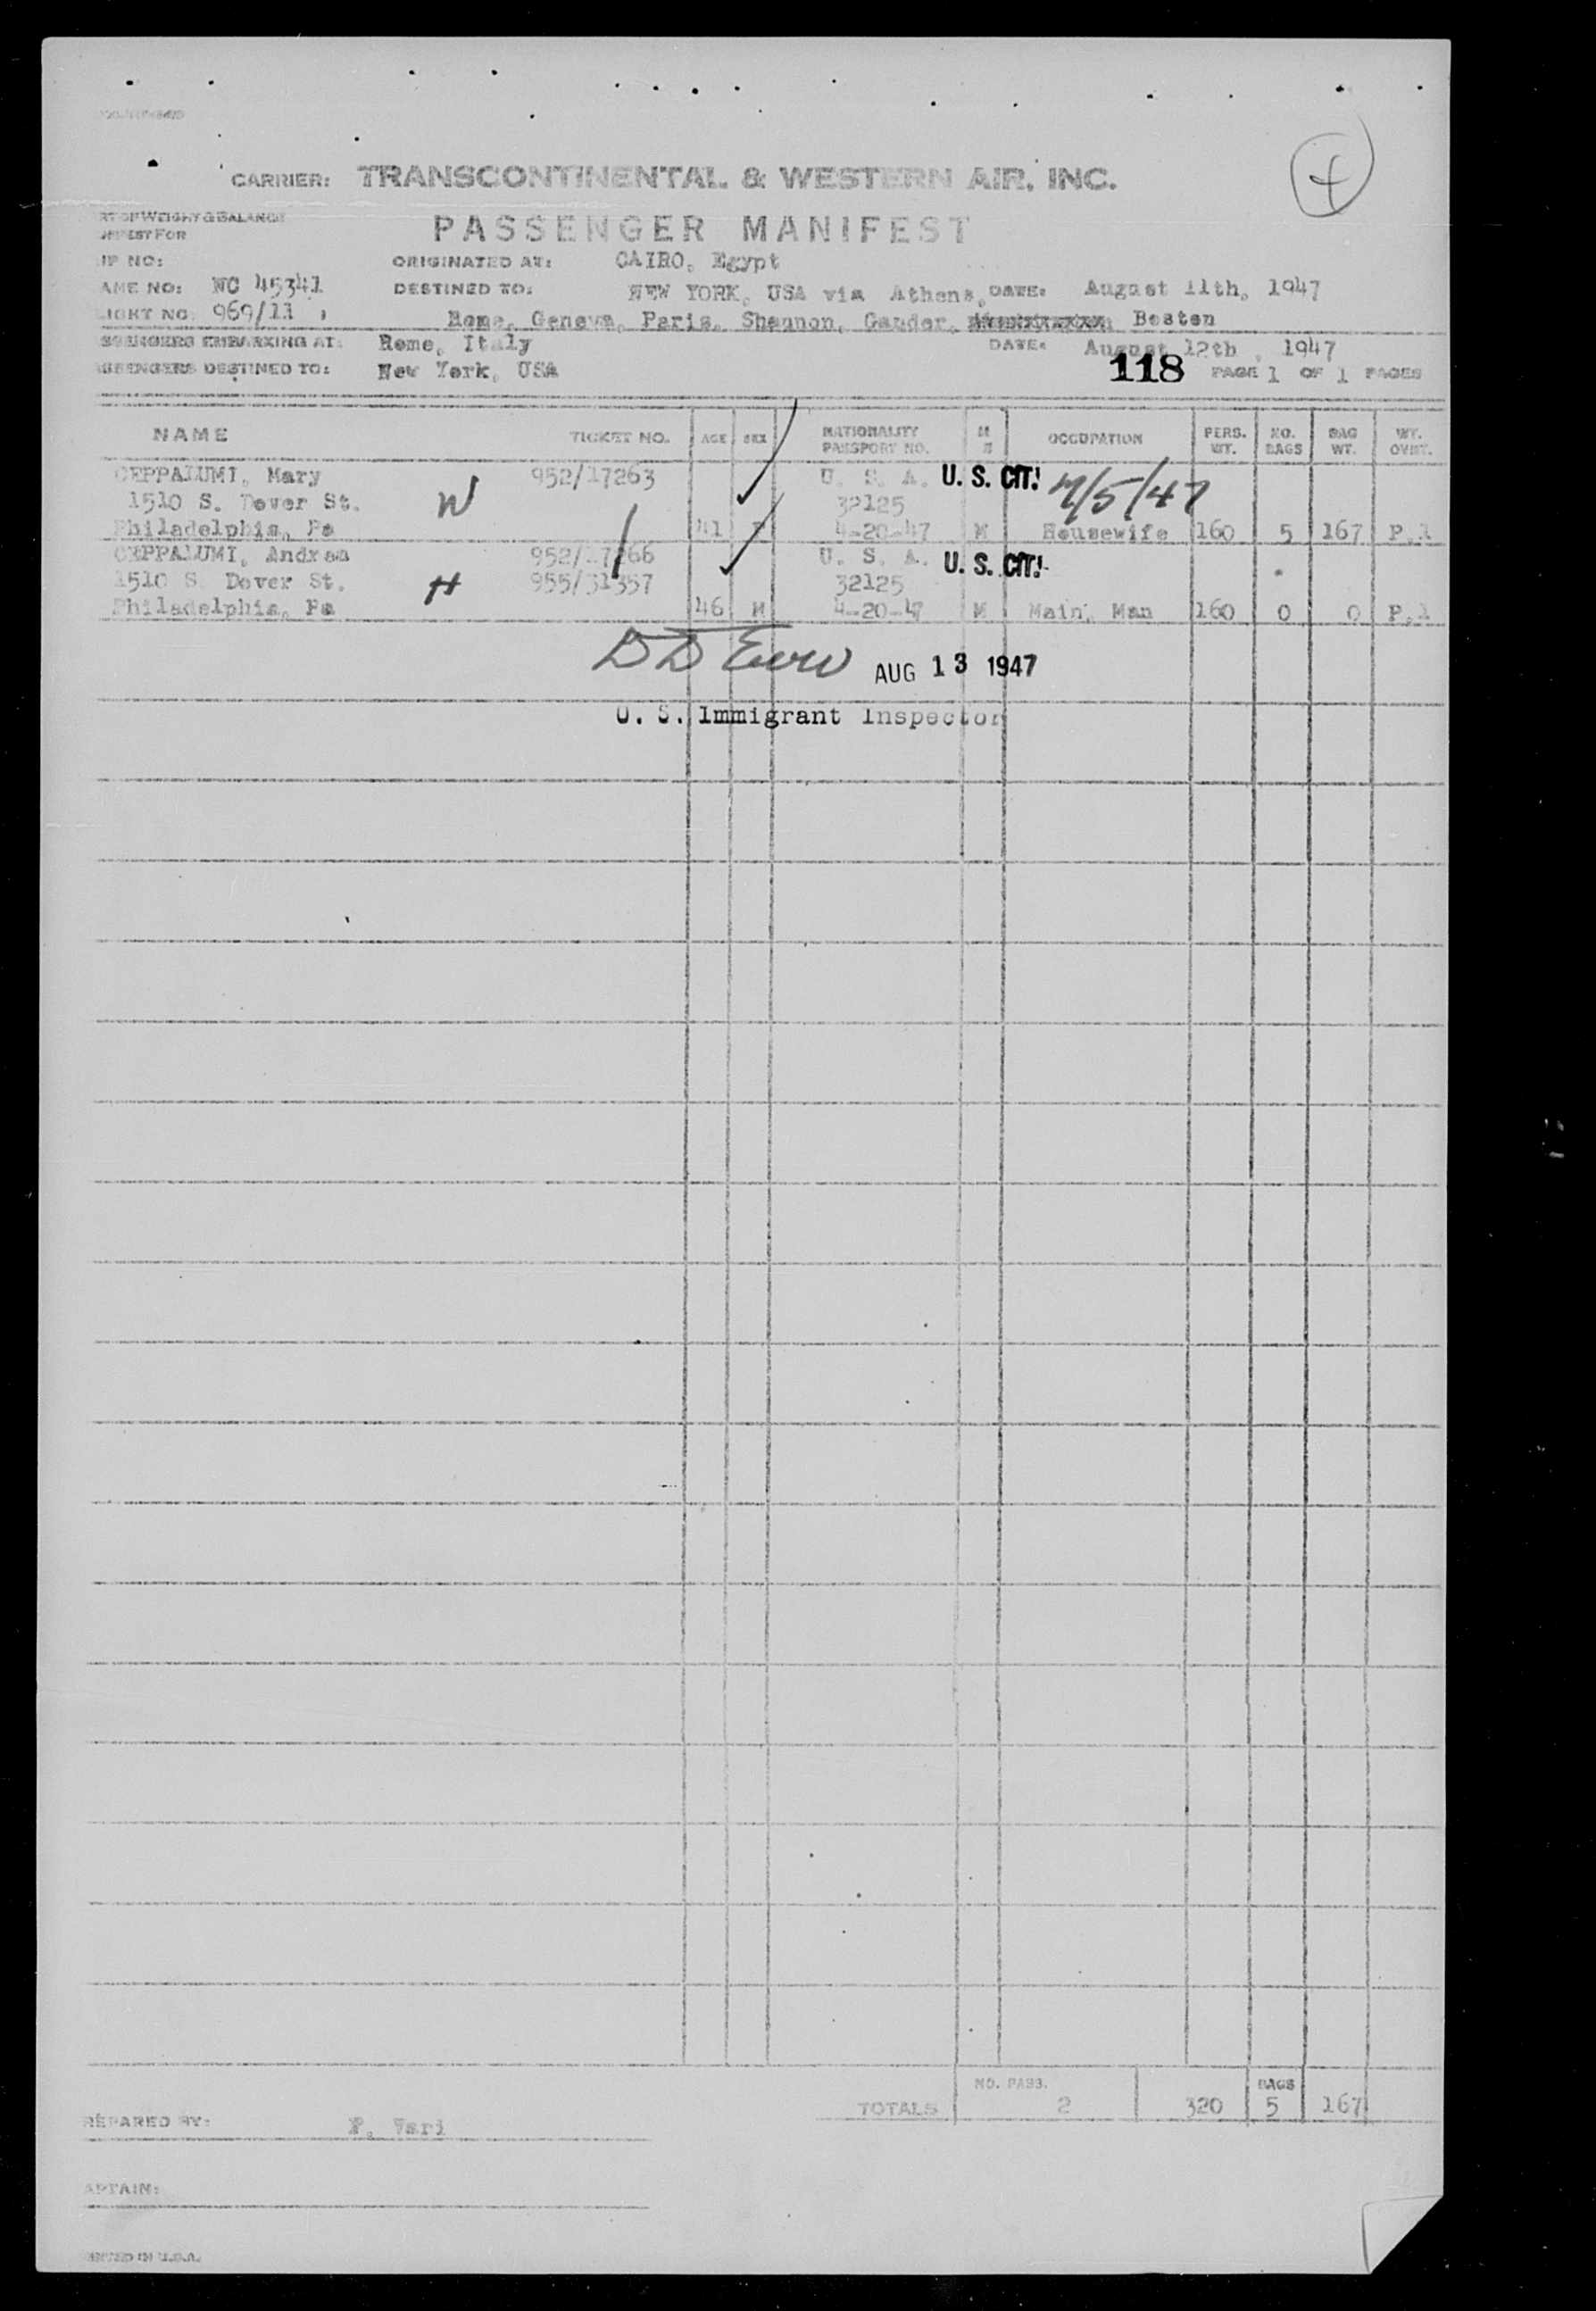 4
CARRIER: TRANSCONTINENTAL & WESTERN AIR, INC.
RT OF WEIGHT & BALANCE
PASSENGER MANIFEST
IFEST FOR
IP NO: ORIGINATED AT: CAIRO, Egypt
AME NO: NC 45341 DESTINED TO: NEW YORK, USA via Athens, DATE: August 11th, 1947
LIGHT NO. 969/11 Rome, Geneva, Paris, Shannon, Gander, Boston
SSENGERS EMBARKING AT: Rome, Italy DATE: August 12th, 1947
SSENGERS DESTINED TO: New York, USA 118 PAGE 1 OF 1 PAGES
NAME TICKET NO. AGE SEX NATIONALITY PASSPORT NO. M S OCCUPATION PERS. WT. NO. BAGS BAG WT. WT. OVWT.
CEPPALUMI, Mary 952/17263 U. S. A. U. S. CIT.
1510 S. Dover St. W 32125 7/5/47
Philadelphia, Pa 41 F 4-20-47 M Housewife 160 5 167 P.A
CEPPALUMI, Andrea 952/17266 U. S. A. U. S. CIT.
1510 S. Dover St. H 955/31357 32125
Philadelphia, Pa 46 M 4-20-47 M Main. Man 160 0 0 P.A
AUG 13 1947
U. S. Immigrant Inspector
NO. PASS. BAGS
TOTALS 2 320 5 167
REPARED BY: P. Vari
APTAIN:
INTED IN U.S.A.